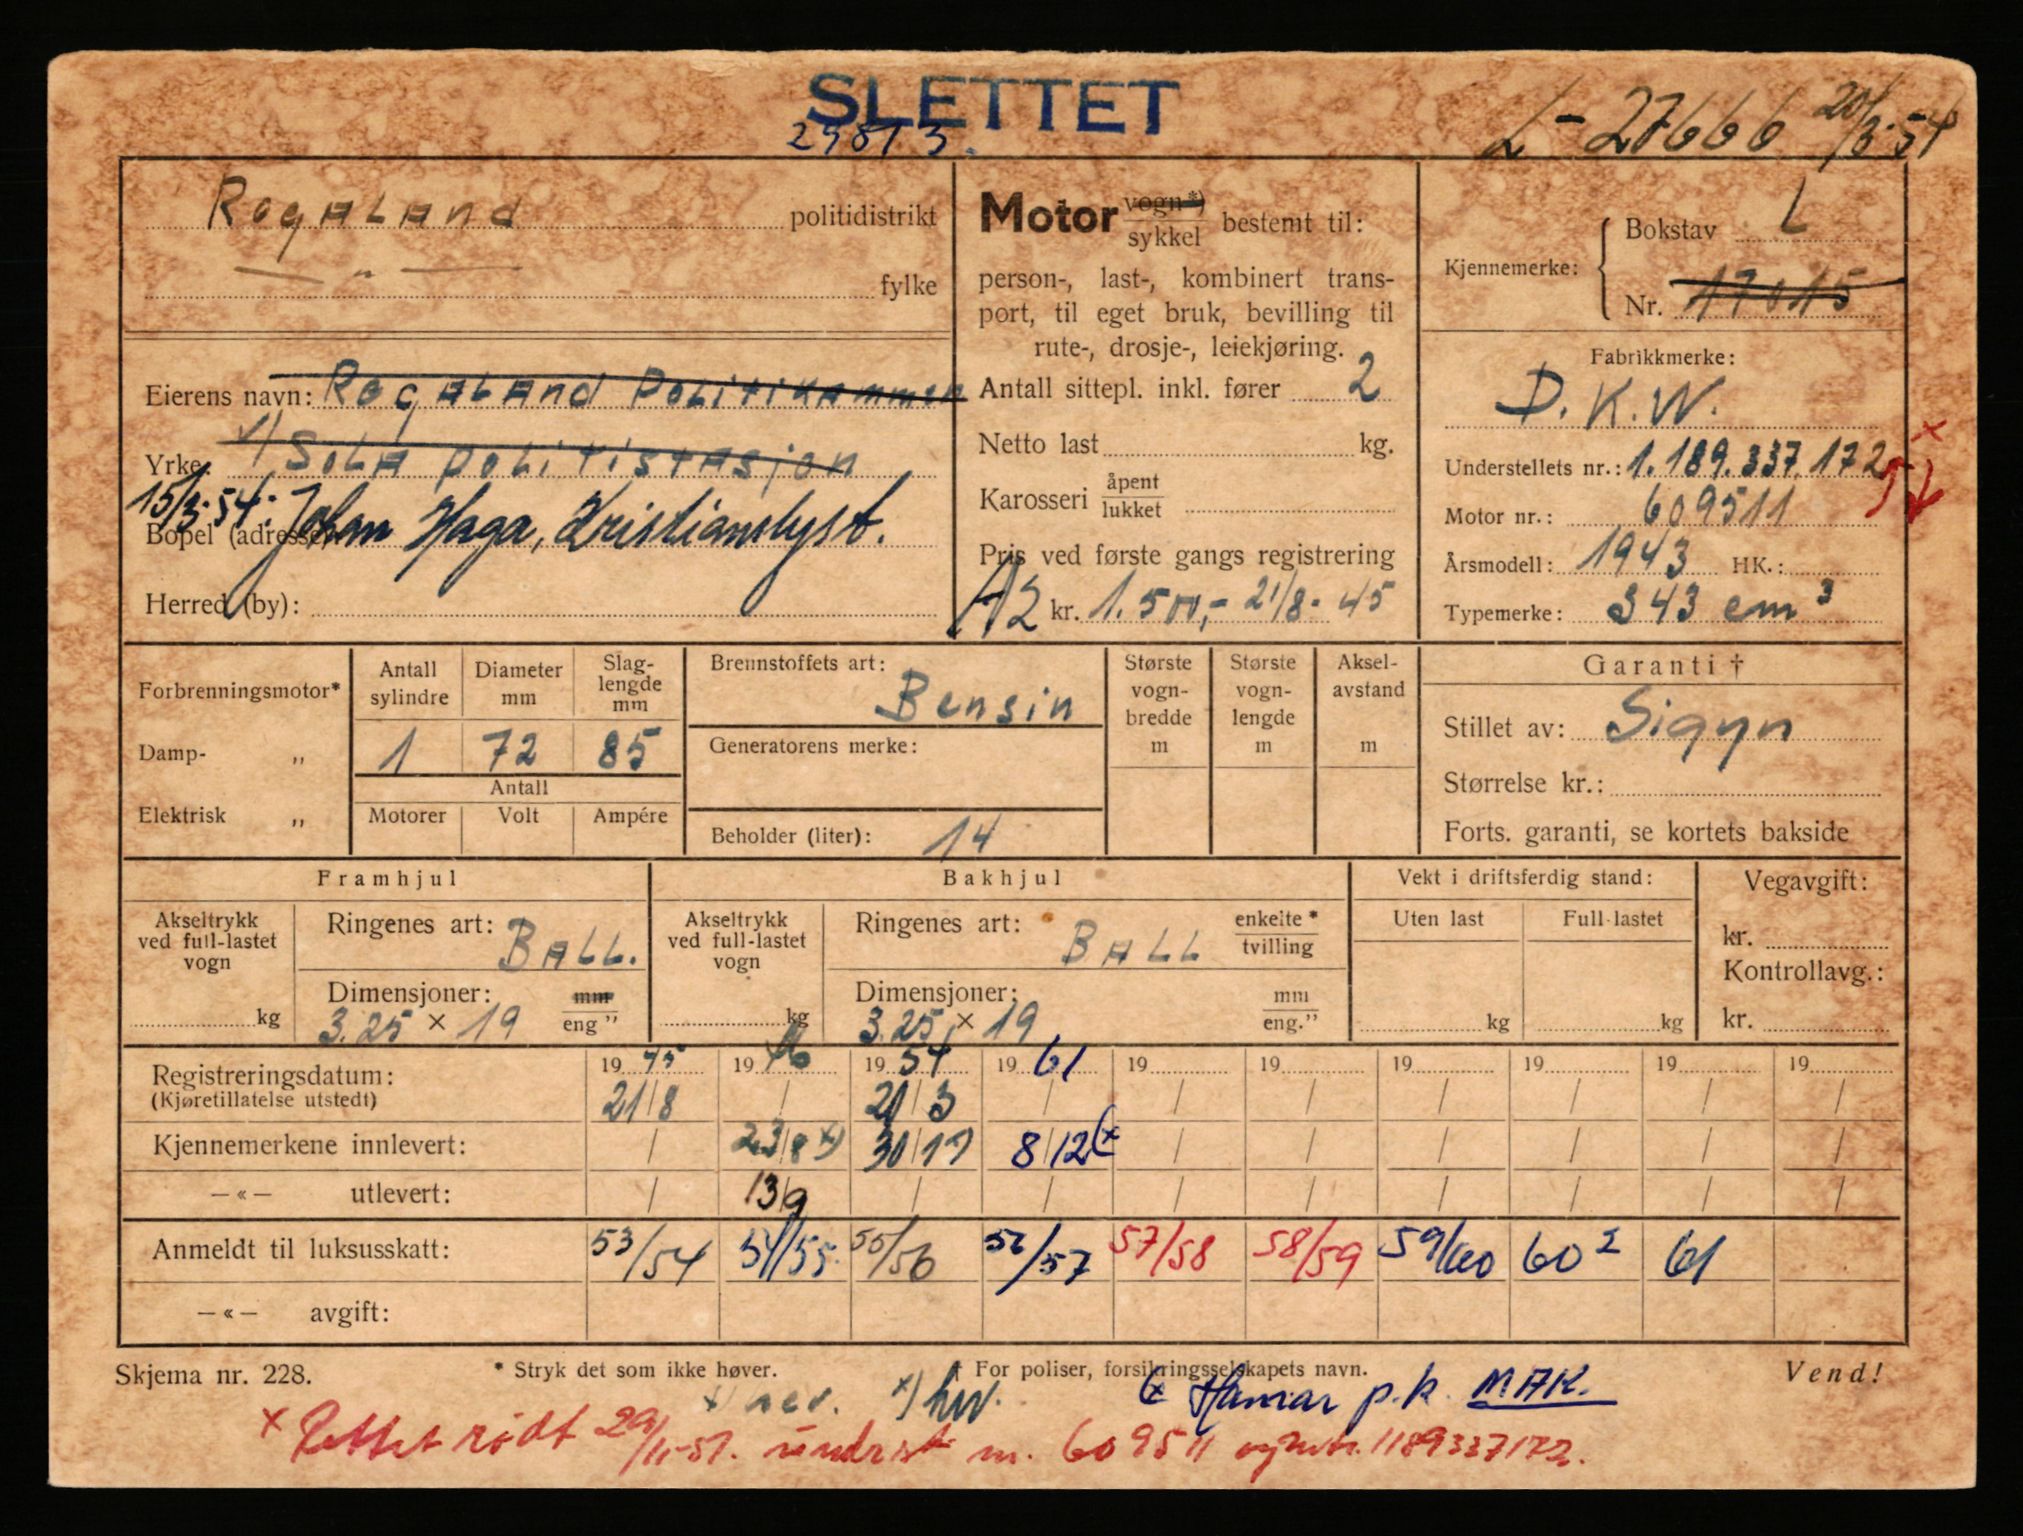 SLETTET
L-27666 20/3-54
Rogaland politidistrikt
— „ — fylke
Motor vogn*) sykkel bestemt til:
person-, last-, kombinert trans-
port, til eget bruk, bevilling til
rute-, drosje-, leiekjøring.
Antall sittepl. inkl. fører 2
Netto last kg.
Karosseri åpent lukket
Pris ved første gangs registrering
A2 kr. 1.500,- 21/8-45
Kjennemerke: Bokstav L
Nr. 17015
Fabrikkmerke:
D.K.W.
Understellets nr.: 1.189.337.172
Motor nr.: 609511
Årsmodell: 1943 HK.:
Typemerke: 343 cm³
Eierens navn: Rogaland Politikammer
Yrke: Sola politistasjon
15/3-54: Johan Haga, Kristianslyst.
Bopel (adresse):
Herred (by):
Forbrenningsmotor*
Damp- „
Elektrisk „
Antall sylindre 1
Diameter mm 72
Slag-lengde mm 85
Antall
Motorer Volt Ampére
Brennstoffets art: Bensin
Generatorens merke:
Beholder (liter): 14
Største vogn-bredde m
Største vogn-lengde m
Aksel-avstand m
Garanti †
Stillet av: Sigyn
Størrelse kr.:
Forts. garanti, se kortets bakside
Framhjul
Akseltrykk ved full-lastet vogn kg
Ringenes art: BALL.
Dimensjoner: 3.25 × 19 mm eng "
Bakhjul
Akseltrykk ved full-lastet vogn kg
Ringenes art: BALL enkelte * tvilling
Dimensjoner: 3.25 × 19 mm eng."
Vekt i driftsferdig stand:
Uten last kg Full-lastet kg
Vegavgift:
kr.
Kontrollavg.:
kr.
19 45 19 46 19 54 19 61 19 19 19 19 19 19
Registreringsdatum: 21/8 / 20/3 / / / / / / /
(Kjøretillatelse utstedt)
Kjennemerkene innlevert: / 23/8 x) 30/11 8/12 (x / / / / / /
—«— utlevert: / 13/9 / / / / / / / /
Anmeldt til luksusskatt: 53/54 54/55 55/56 56/57 57/58 58/59 59/60 60² 61
—«— avgift:
Skjema nr. 228. * Stryk det som ikke høver. † For poliser, forsikringsselskapets navn. Vend!
(x Hamar p.k. MAK.
x Rettet rødt 29/11-57. 609511 1189337172.